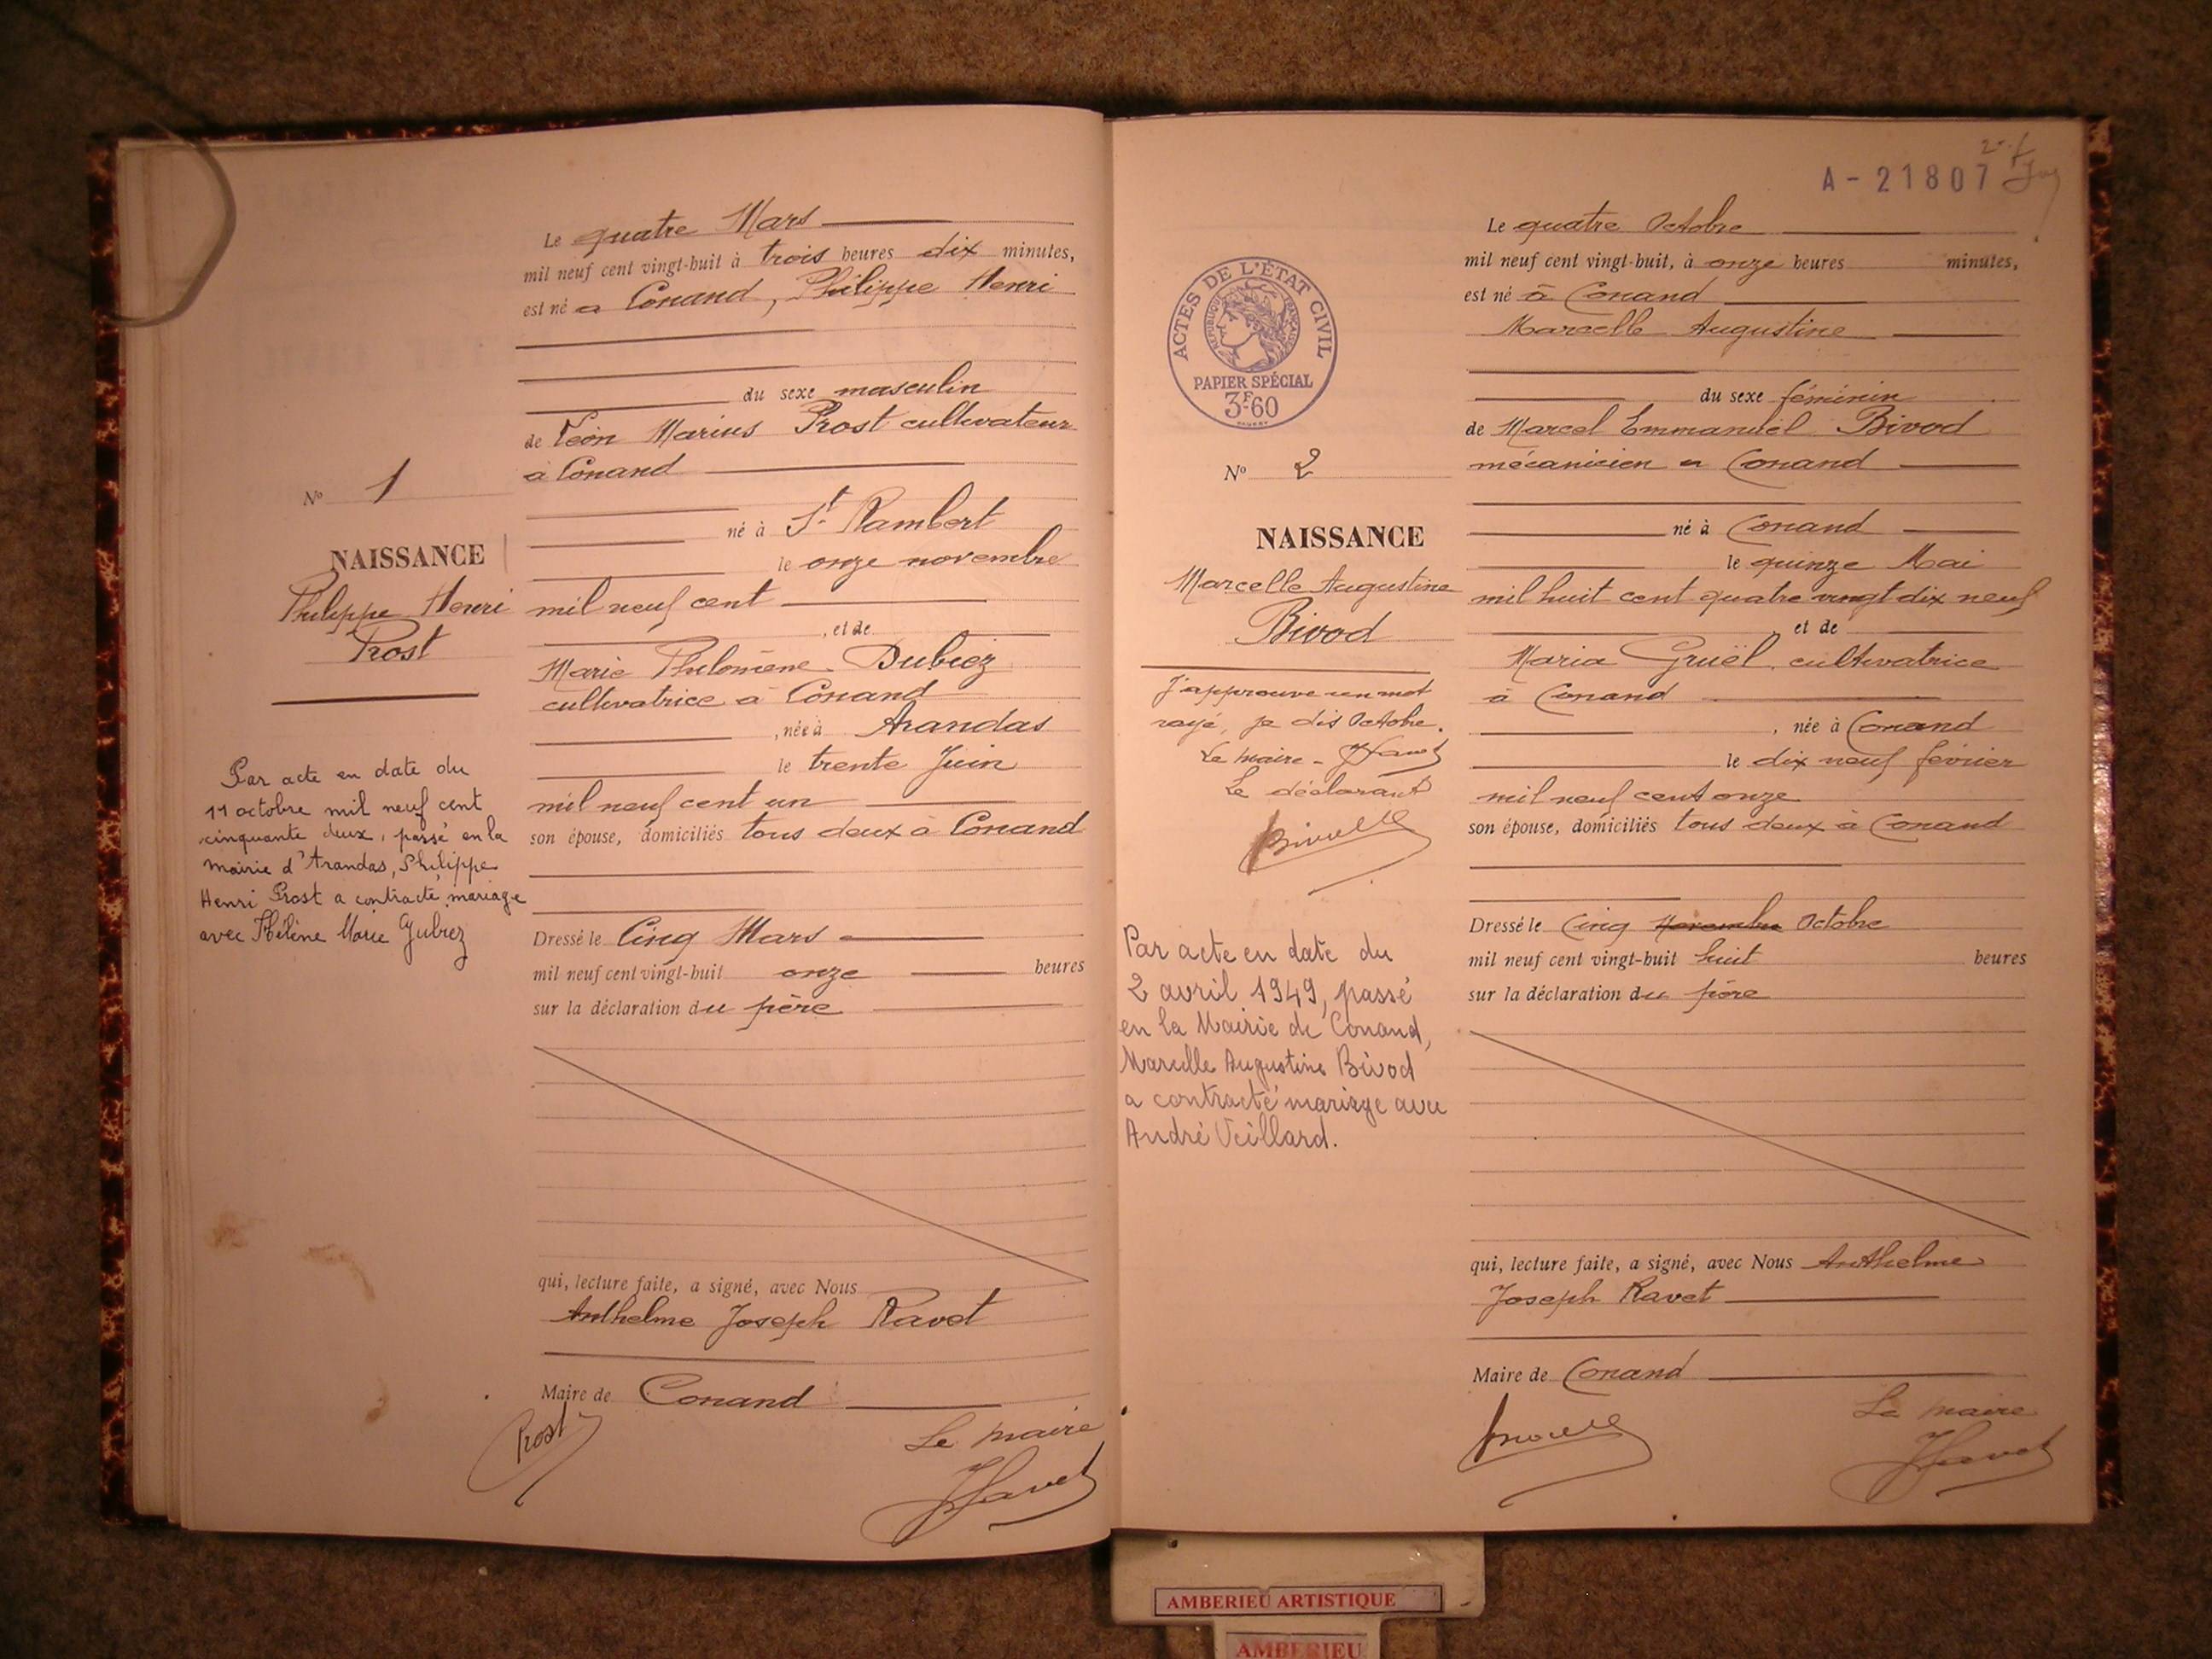 Le quatre Mars
mil neuf cent vingt-huit à trois heures dix minutes,
est né a Conand, Philippe Henri
du sexe masculin
de Léon Marius Prost cultivateur
à Conand
né à St Rambert
le onze novembre
mil neuf cent
, et de
Marie Philomène Dubiez
cultivatrice à Conand
, née à Arandas
le trente Juin
mil neuf cent un
son épouse, domiciliés tous deux à Conand
Dressé le Cinq Mars
mil neuf cent vingt-huit onze heures
sur la déclaration du père
qui, lecture faite, a signé, avec Nous
Anthelme Joseph Ravet
Maire de Conand
Prost
Le maire
JRavet
No 1
NAISSANCE
Philippe Henri
Prost
Par acte en date du
11 octobre mil neuf cent
cinquante deux, passé en la
mairie d'Arandas, Philippe
Henri Prost a contracté mariage
avec Hélène Marie
A-21807
Le quatre Octobre
mil neuf cent vingt-huit, à onze heures minutes,
est né à Conand
Marcelle Augustine
du sexe féminin
de Marcel Emmanuel Bivod
mécanicien a Conand
né à Conand
le quinze Mai
mil huit cent quatre vingt dix neuf
et de
Maria Gruël cultivatrice
à Conand
, née à Conand
le dix neuf février
mil neuf cent onze
son épouse, domiciliés tous deux à Conand
Dressé le Cinq Novembre Octobre
mil neuf cent vingt-huit huit heures
sur la déclaration du père
qui, lecture faite, a signé, avec Nous Anthelme
Joseph Ravet
Maire de Conand
Le maire
JRavet
ACTES DE L'ÉTAT CIVIL
RÉPUBLIQUE FRANÇAISE
PAPIER SPÉCIAL
3F60
No 2
NAISSANCE
Marcelle Augustine
Bivod
J'approuve un mot
rayé, je dis Octobre.
Le maire - JRavet
Le déclarant
Par acte en date du
2 avril 1949, passé
en la Mairie de Conand,
Marcelle Augustine Bivod
a contracté mariage avec
André Veillard.
AMBERIEU ARTISTIQUE
AMBERIEU